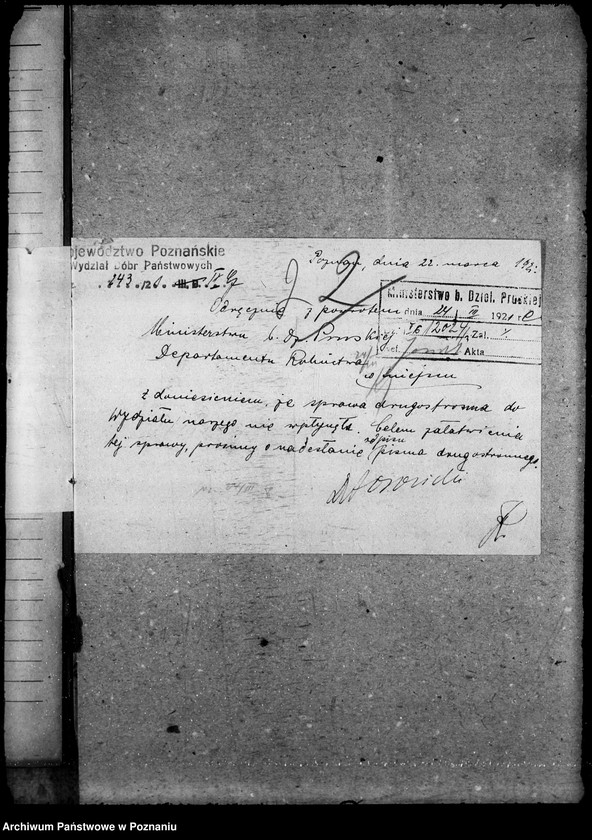 ojewództwo Poznańskie
Wydział Dóbr Państwowych
Poznań, dnia 22. marca
243
2
Ministerstwo b. Dziel. Pruskiej
dnia 24 III 1921 r.
2024 Zał.
Akta
Odręcznie z powrotem
Ministerstwu b. Dz. Pruskiej
Departamentu Rolnictwa
w miejscu
z doniesieniem, że sprawa drugostronna do
Wydziału naszego nie wpłynęła. Celem załatwienia
odpisu
tej sprawy, prosimy o nadesłanie pisma drugostronnego.
Archiwum Państwowe w Poznaniu